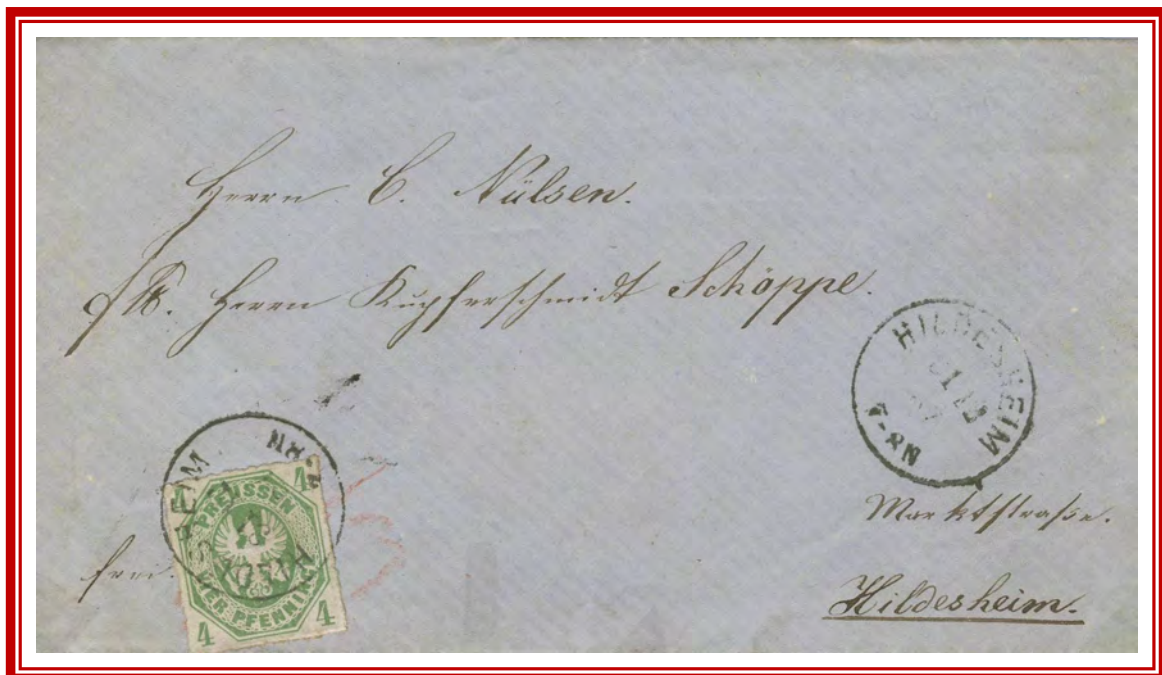 Herrn C. Nülsen.
Herrn Kupferschmidt Schöppe.
HILDESHEIM
7-8N
Marktstraße.
frei.
Hildesheim.
4 4
PREUSSEN
VIER PFENNINGE
4 4